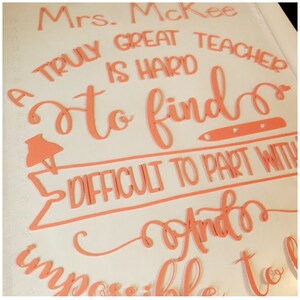 Mrs. McKee
A TRULY GREAT TEACHER
IS HARD
to find
DIFFICULT TO PART WITH
And
impossible to